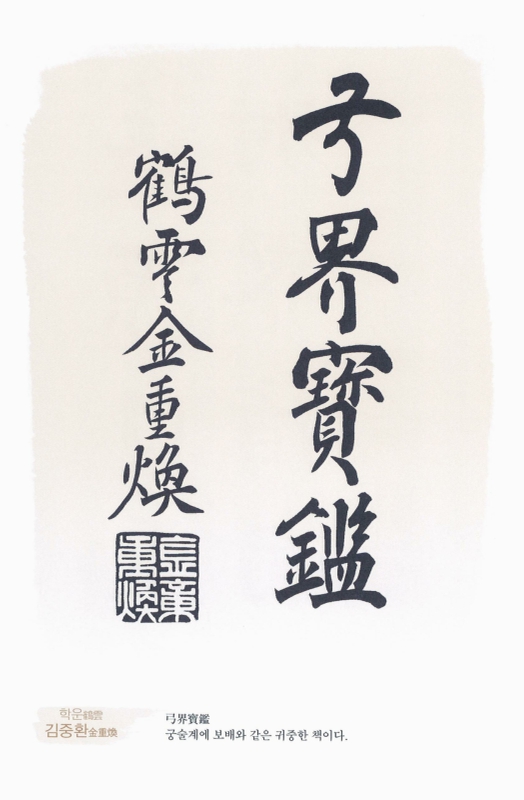 弓界寶鑑
鶴雲金重煥
학운鶴雲
김중환金重煥
弓界寶鑑
궁술계에 보배와 같은 귀중한 책이다.